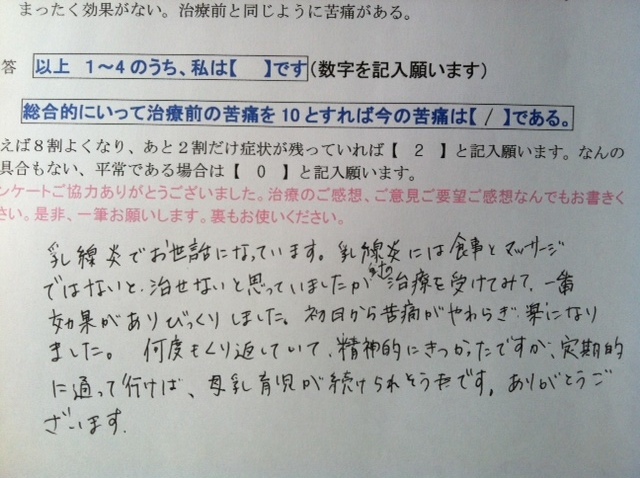 まったく効果がない。治療前と同じように苦痛がある。
答 以上 1〜4のうち、私は【 】です(数字を記入願います)
総合的にいって治療前の苦痛を10とすれば今の苦痛は【 / 】である。
えば8割よくなり、あと2割だけ症状が残っていれば【 2 】と記入願います。なんの
具合もない、平常である場合は【 0 】と記入願います。
ンケートご協力ありがとうございました。治療のご感想、ご意見ご要望ご感想なんでもお書きく
さい。是非、一筆お願いします。裏もお使いください。
乳線炎でお世話になっています。乳線炎には食事とマッサージ
ではないと、治せないと思っていましたが 治療を受けてみて、一番
効果がありびっくりしました。初日から苦痛がやわらぎ 楽になり
ました。 何度もくり返していて、精神的にきつかったですが、定期的
に通って行けば、母乳育児が続けられそうです。ありがとうご
ざいます.